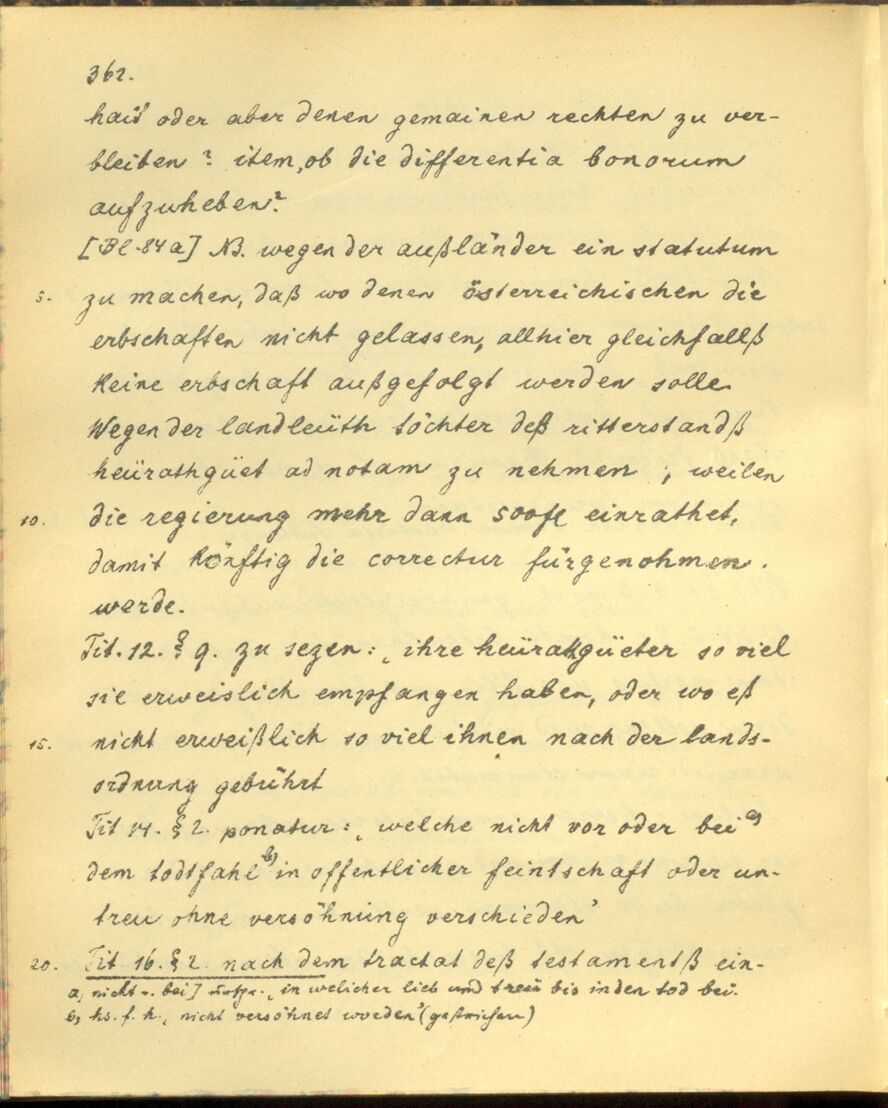 362.
haiß oder aber denen gemainen rechten zu ver-
bleiben? item, ob die differentia bonorum
aufzuheben?
[Bl. 84 a] NB. wegen der außländer ein statutum
5. zu machen, daß wo denen österreichischen die
erbschaften nicht gelassen, allhier gleichfallß
keine erbschaft außgefolgt werden solle.
Wegen der landleüth töchter deß ritterstandß
heürathgüet ad notam zu nehmen; weilen
10. die regierung mehr dann 500 fl einrathet,
damit könftig die correctur fürgenohmen.
werde.
Tit. 12. § 9. zu sezen: „ihre heüratgüeter so viel
sie erweislich empfangen haben, oder wo eß
15. nicht erweißlich so viel ihnen nach der lands-
ordnung gebührt
Tit 14. § 2. ponatur: „welche nicht vor oder bei a)
dem todtfahl b) in offentlicher feintschaft oder un-
treu ohne versöhnung verschieden"
20. Tit 16. § 2. nach dem tractat deß testamentß ein-
a) nicht - bei] „in welicher lieb und treü bis in den tod bei.
b) hs. f. h. „nicht versöhnet worden" (gestrichen)